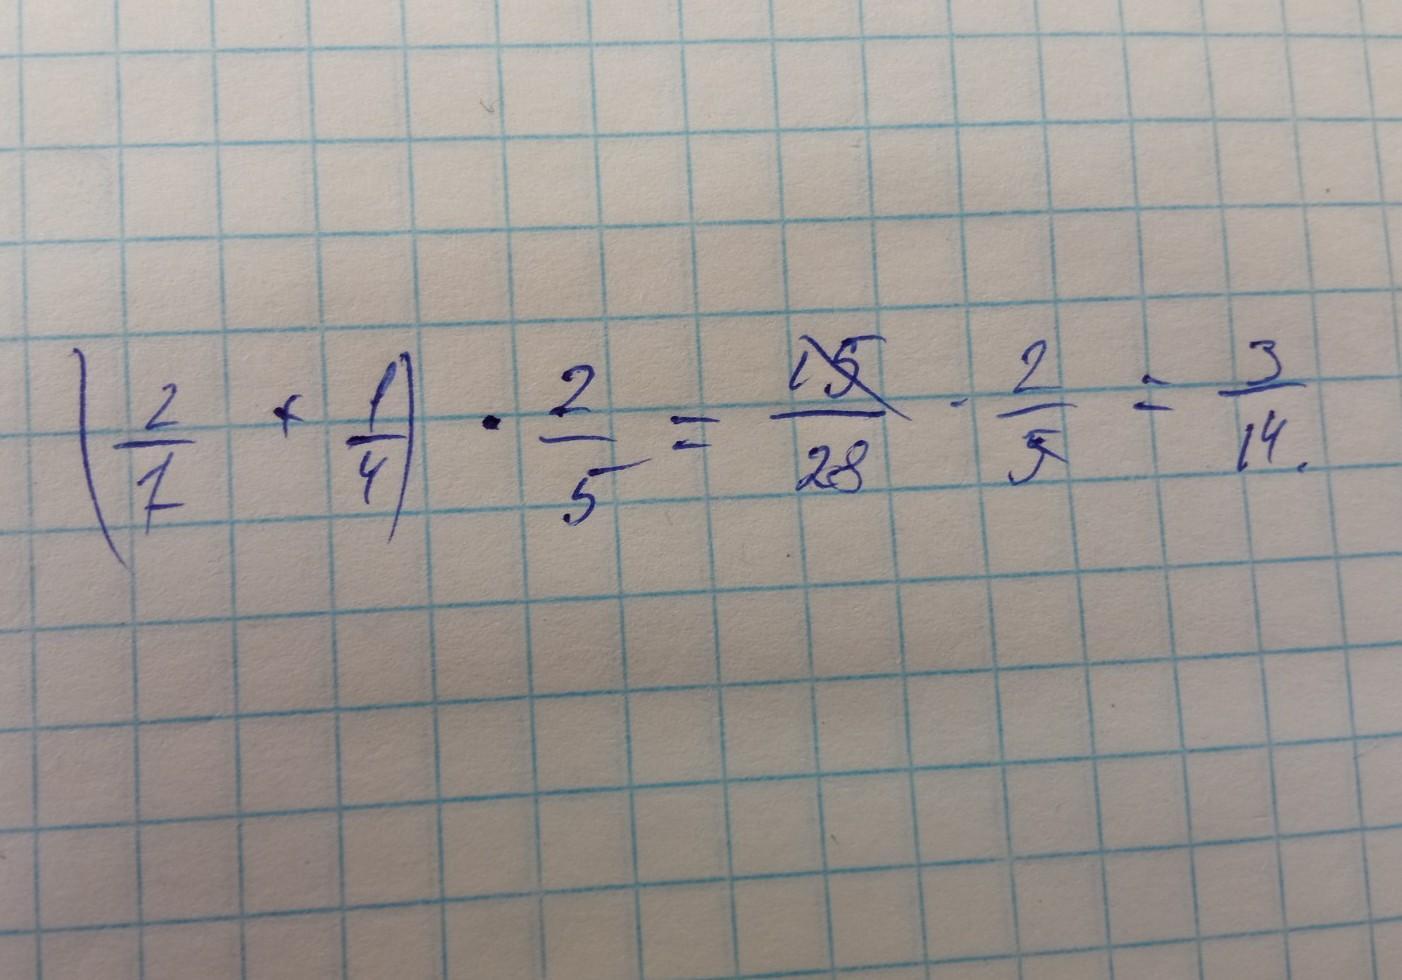 (2/7 + 1/4) · 2/5 = 15/28 · 2/5 = 3/14.